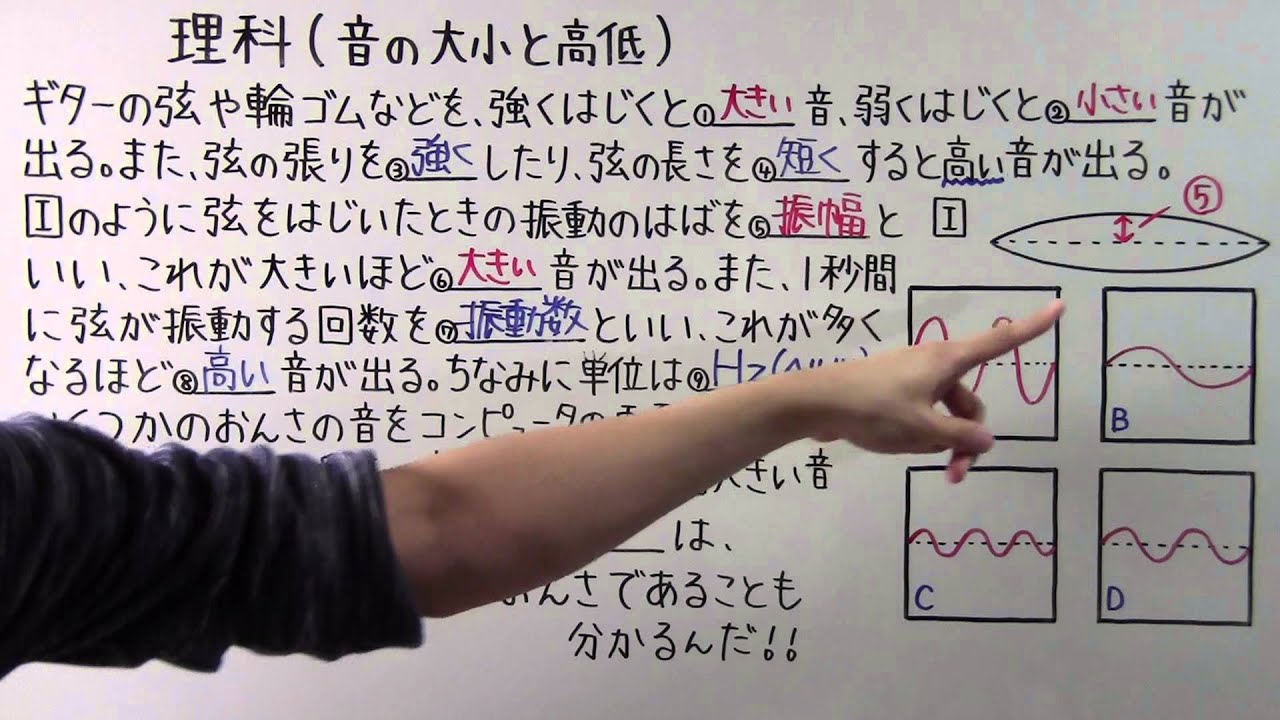 理科(音の大小と高低)
ギターの弦や輪ゴムなどを、強くはじくと①大きい音、弱くはじくと②小さい音が
出る。また、弦の張りを③強くしたり、弦の長さを④短くすると高い音が出る。
Iのように弦をはじいたときの振動のはばを⑤振幅と
いい、これが大きいほど⑥大きい音が出る。また、1秒間
に弦が振動する回数を⑦振動数といい、これが多く
なるほど⑧高い音が出る。ちなみに単位は⑨Hz
つかのおんさの音をコンピュータの
大きい音
は、
おんさであることも
分かるんだ!!
I
⑤
B
C
D